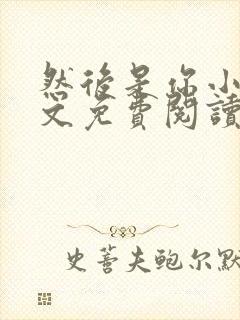 然後是你小
文免費閱讀
史蒂夫鲍尔默